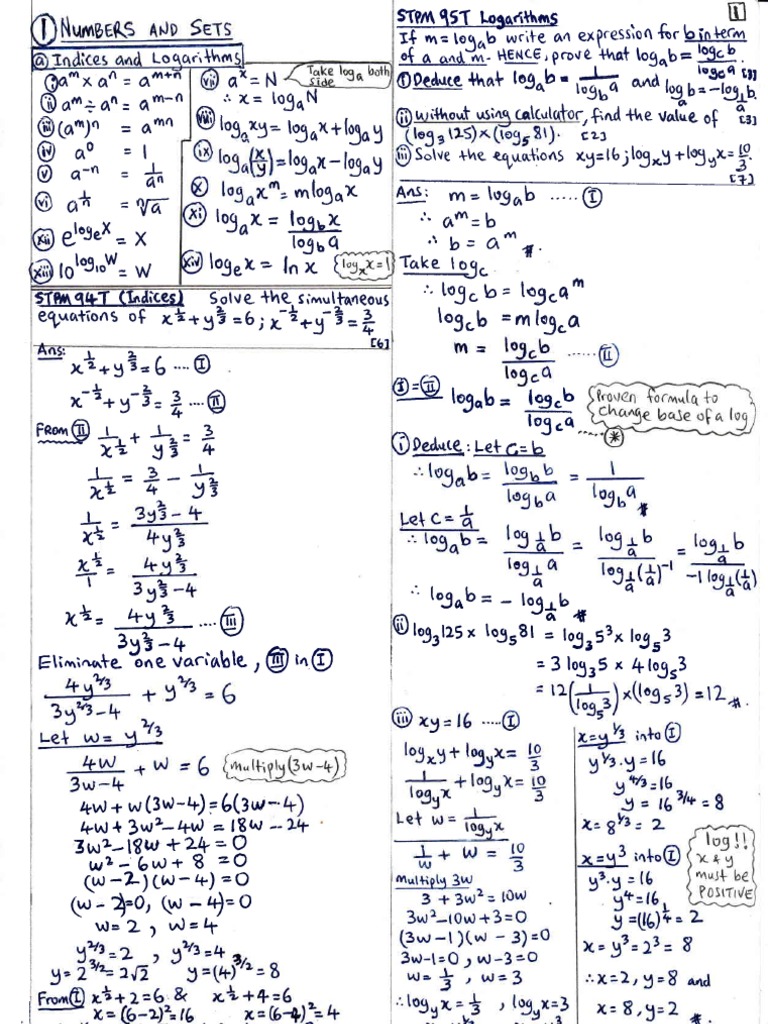 ① NUMBERS AND SETS
ⓐ Indices and Logarithms
ⓘ a^m × a^n = a^(m+n)
ⅱ a^m ÷ a^n = a^(m-n)
ⅲ (a^m)^n = a^(mn)
ⅳ a^0 = 1
ⅴ a^(-n) = 1/a^n
ⅵ a^(1/n) = ⁿ√a
ⅻ e^(log_e x) = X
xiii 10^(log_10 W) = W
vii a^x = N
Take log_a both side
∴ x = log_a N
viii log_a xy = log_a x + log_a y
ix log_a (x/y) = log_a x - log_a y
x log_a x^m = m log_a x
xi log_a x = log_b x / log_b a
xiv log_e x = ln x
log_x x = 1
STPM 94T (Indices) Solve the simultaneous
equations of x^(1/2) + y^(2/3) = 6 ; x^(-1/2) + y^(-2/3) = 3/4
[6]
Ans:
x^(1/2) + y^(2/3) = 6 .... Ⅰ
x^(-1/2) + y^(-2/3) = 3/4 .... Ⅱ
From Ⅱ 1/x^(1/2) + 1/y^(2/3) = 3/4
1/x^(1/2) = 3/4 - 1/y^(2/3)
1/x^(1/2) = (3y^(2/3) - 4) / 4y^(2/3)
x^(1/2)/1 = 4y^(2/3) / (3y^(2/3) - 4)
x^(1/2) = 4y^(2/3) / (3y^(2/3) - 4) .... Ⅲ
Eliminate one variable, Ⅲ in Ⅰ
4y^(2/3) / (3y^(2/3) - 4) + y^(2/3) = 6
Let w = y^(2/3)
4w / (3w - 4) + w = 6
multiply (3w-4)
4w + w(3w-4) = 6(3w-4)
4w + 3w² - 4w = 18w - 24
3w² - 18w + 24 = 0
w² - 6w + 8 = 0
(w-2)(w-4) = 0
(w-2)=0, (w-4)=0
w = 2 , w = 4
y^(2/3) = 2 , y^(2/3) = 4
y = 2^(3/2) = 2√2 y = (4)^(3/2) = 8
From Ⅰ x^(1/2) + 2 = 6 & x^(1/2) + 4 = 6
x = (6-2)² = 16 x = (6-4)² = 4
1
STPM 95T Logarithms
If m = log_a b write an expression for b in term
of a and m. HENCE, prove that log_a b = log_c b / log_c a [3]
ⓘ Deduce that log_a b = 1 / log_b a and log_a b = -log_(1/a) b
[3]
ⅱ Without using calculator, find the value of
(log_3 125) × (log_5 81). [2]
ⅲ Solve the equations xy = 16 ; log_x y + log_y x = 10/3.
[7]
Ans: m = log_a b ..... Ⅰ
∴ a^m = b
∴ b = a^m #.
Take log_c
∴ log_c b = log_c a^m
log_c b = m log_c a
m = log_c b / log_c a ...... Ⅱ
Ⅰ = Ⅱ log_a b = log_c b / log_c a
...... *
Proven formula to
change base of a log
ⓘ Deduce : Let C = b
∴ log_a b = log_b b / log_b a = 1 / log_b a #
Let C = 1/a
∴ log_a b = log_(1/a) b / log_(1/a) a = log_(1/a) b / log_(1/a) (1/a)^(-1) = log_(1/a) b / -1 log_(1/a) (1/a)
∴ log_a b = - log_(1/a) b #
ⅱ log_3 125 × log_5 81 = log_3 5³ × log_5 3
= 3 log_3 5 × 4 log_5 3
= 12 (1 / log_5 3) × (log_5 3) = 12 #.
ⅲ xy = 16 ..... Ⅰ
log_x y + log_y x = 10/3
1 / log_y x + log_y x = 10/3
Let w = 1 / log_y x
1/w + w = 10/3
multiply 3w
3 + 3w² = 10w
3w² - 10w + 3 = 0
(3w-1)(w-3) = 0
3w-1=0 , w-3=0
w = 1/3 , w = 3
∴ log_y x = 1/3 , log_y x = 3
x = y^(1/3) into Ⅰ
y^(1/3) . y = 16
y^(4/3) = 16
y = 16^(3/4) = 8
x = 8^(1/3) = 2
log!!
x & y
must be
POSITIVE
x = y³ into Ⅰ
y³ . y = 16
y⁴ = 16
y = (16)^(1/4) = 2
x = y³ = 2³ = 8
∴ x = 2, y = 8 and
x = 8, y = 2 #